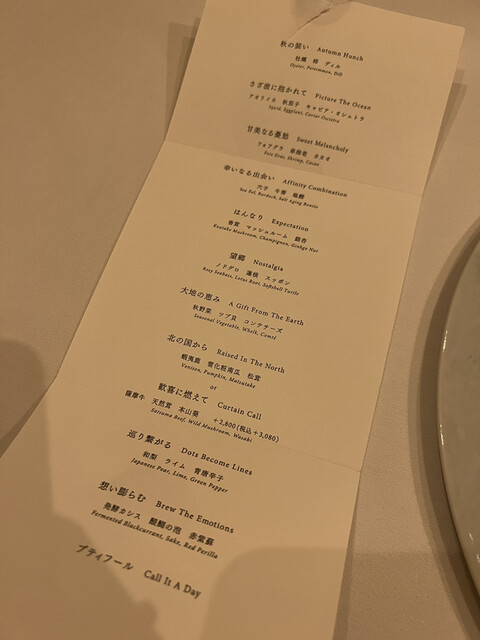 秋の装い Autumn Hunch
牡蠣 柿 ディル
Oyster, Persimmon, Dill
さざ波に抱かれて Picture The Ocean
アオリイカ 秋茄子 キャビア・オシェトラ
Squid, Eggplant, Caviar Oscietra
甘美なる憂愁 Sweet Melancholy
フォアグラ 車海老 カカオ
Foie Gras, Shrimp, Cacao
幸いなる出会い Affinity Combination
穴子 牛蒡 塩鰹
Sea Eel, Burdock, Salt Aging Bonito
はんなり Expectation
香茸 マッシュルーム 銀杏
Koutake Mushroom, Champignon, Ginkgo Nut
望郷 Nostalgia
ノドグロ 蓮根 スッポン
Rosy Seabass, Lotus Root, Softshell Turtle
大地の恵み A Gift From The Earth
秋野菜 ツブ貝 コンテチーズ
Seasonal Vegetable, Whelk, Comté
北の国から Raised In The North
蝦夷鹿 雪化粧南瓜 松茸
Venison, Pumpkin, Matsutake
or
歓喜に燃えて Curtain Call
薩摩牛 天然茸 本山葵 +2,800(税込+3,080)
Satsuma Beef, Wild Mushroom, Wasabi
巡り繋がる Dots Become Lines
和梨 ライム 青唐辛子
Japanese Pear, Lime, Green Pepper
想い膨らむ Brew The Emotions
発酵カシス 醍醐の泡 赤紫蘇
Fermented Blackcurrant, Sake, Red Perilla
プティフール Call It A Day